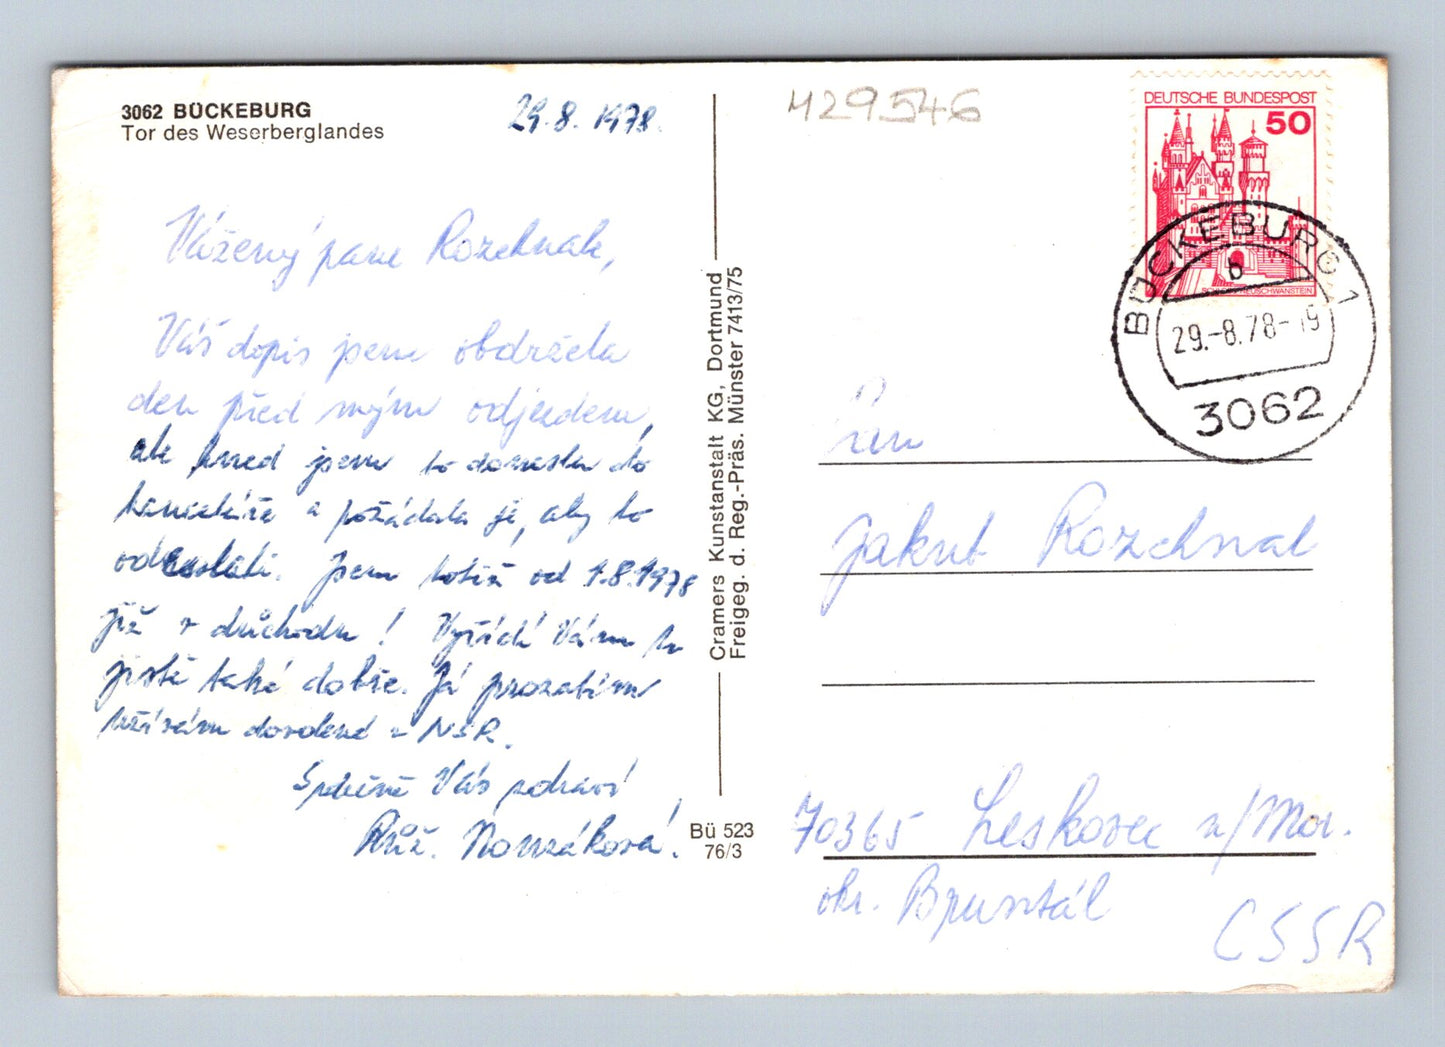 3062 BÜCKEBURG
Tor des Weserberglandes
29.8.1978.
Vážený pane Rozehnale,
Váš dopis jsem obdržela
den před mým odjezdem,
ale hned jsem to donesla do
kanceláře a požádala je, aby to
odeslali. Jsem totiž od 1.8.1978
již v důchodu! Vyřídí Vám to
jistě také dobře. Já prozatím
užívám dovolené v NSR.
Srdečně Vás zdraví
Růž. Nováková.
Cramers Kunstanstalt KG, Dortmund
Freigeg. d. Reg.-Präs. Münster 7413/75
Bü 523
76/3
429546
DEUTSCHE BUNDESPOST
50
SCHLOSS NEUSCHWANSTEIN
BÜCKEBURG 1
b
29.-8.78-19
3062
Pan
Jakub Rozehnal
70365 Leskovec n/Mor.
okr. Bruntál
ČSSR